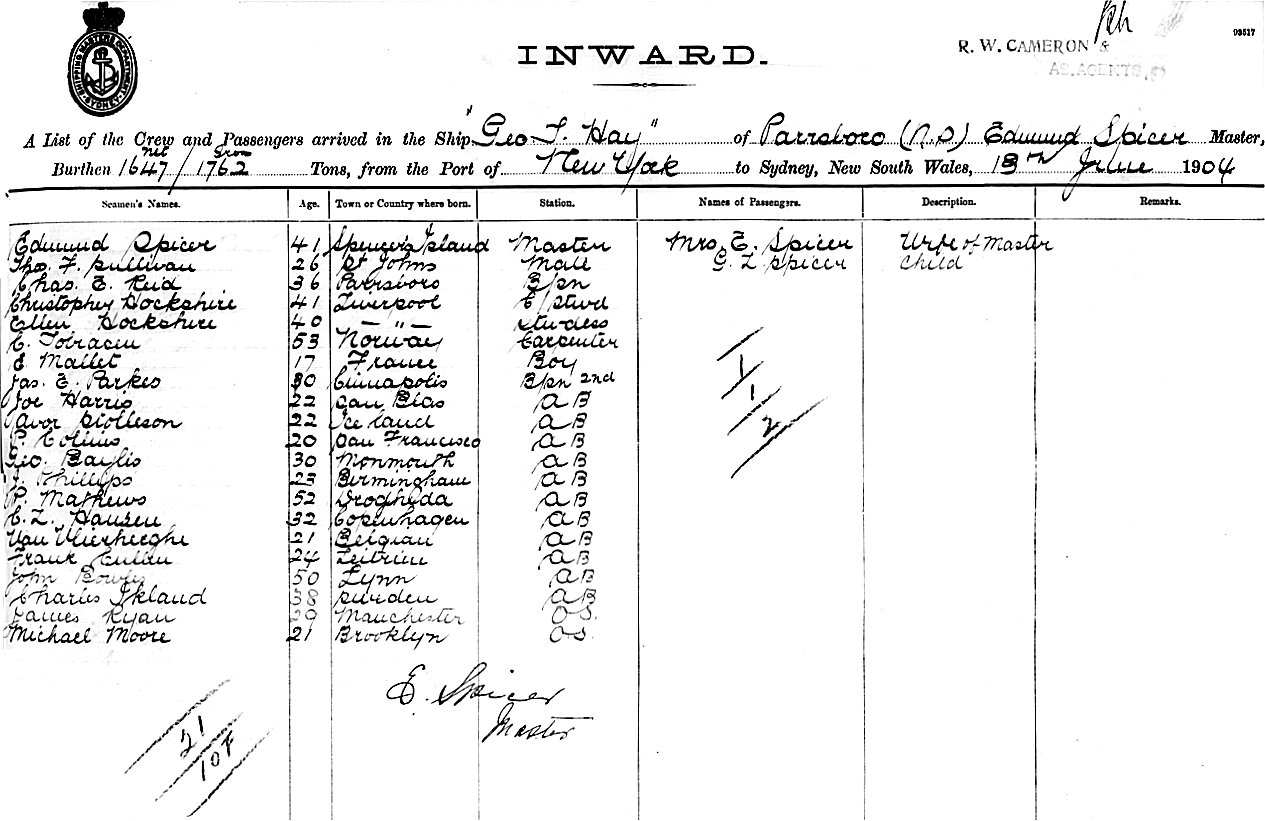 Rh
93517
SHIPPING MASTERS DEPARTMENT SYDNEY
INWARD.
R. W. CAMERON &
AS AGENTS,
A List of the Crew and Passengers arrived in the Ship "Geo T. Hay" of Parrsboro (N.S) Edmund Spicer Master,
Burthen 1647 Net / 1762 Gross Tons, from the Port of New York to Sydney, New South Wales, 13th June 1904
Seamen's Names. Age. Town or Country where born. Station. Names of Passengers. Description. Remarks.
Edmund Spicer 41 Spencer's Island Master Mrs. E. Spicer Wife of Master
Thos. F. Sullivan 26 St Johns Mate G. L. Spicer Child
Chas. E. Reid 36 Parrsboro B/sn
Christopher Hockshire 41 Liverpool C/stwd
Ellen Hockshire 40 — " — Stwdess
C. Tobiasen 53 Norway Carpenter
E Mallet 17 France Boy
Jas. E. Parkes 30 B/sn 2nd
Joe Harris 22 San Blas AB
22 Iceland AB
P. Collins 20 San Francisco AB
Geo. Baylis 30 Monmouth AB
J. Phillips 23 Birmingham AB
P. Mathews 52 Drogheda AB
C. L. Hansen 32 Copenhagen AB
Van Vlierberghe 21 Belgian AB
Frank Cullen 24 Leitrim AB
John 50 Lynn AB
Charles Ikland 38 Sweden AB
James Ryan 29 Manchester OS.
Michael Moore 21 Brooklyn OS.
1
1
2
E. Spicer
Master
21
10F